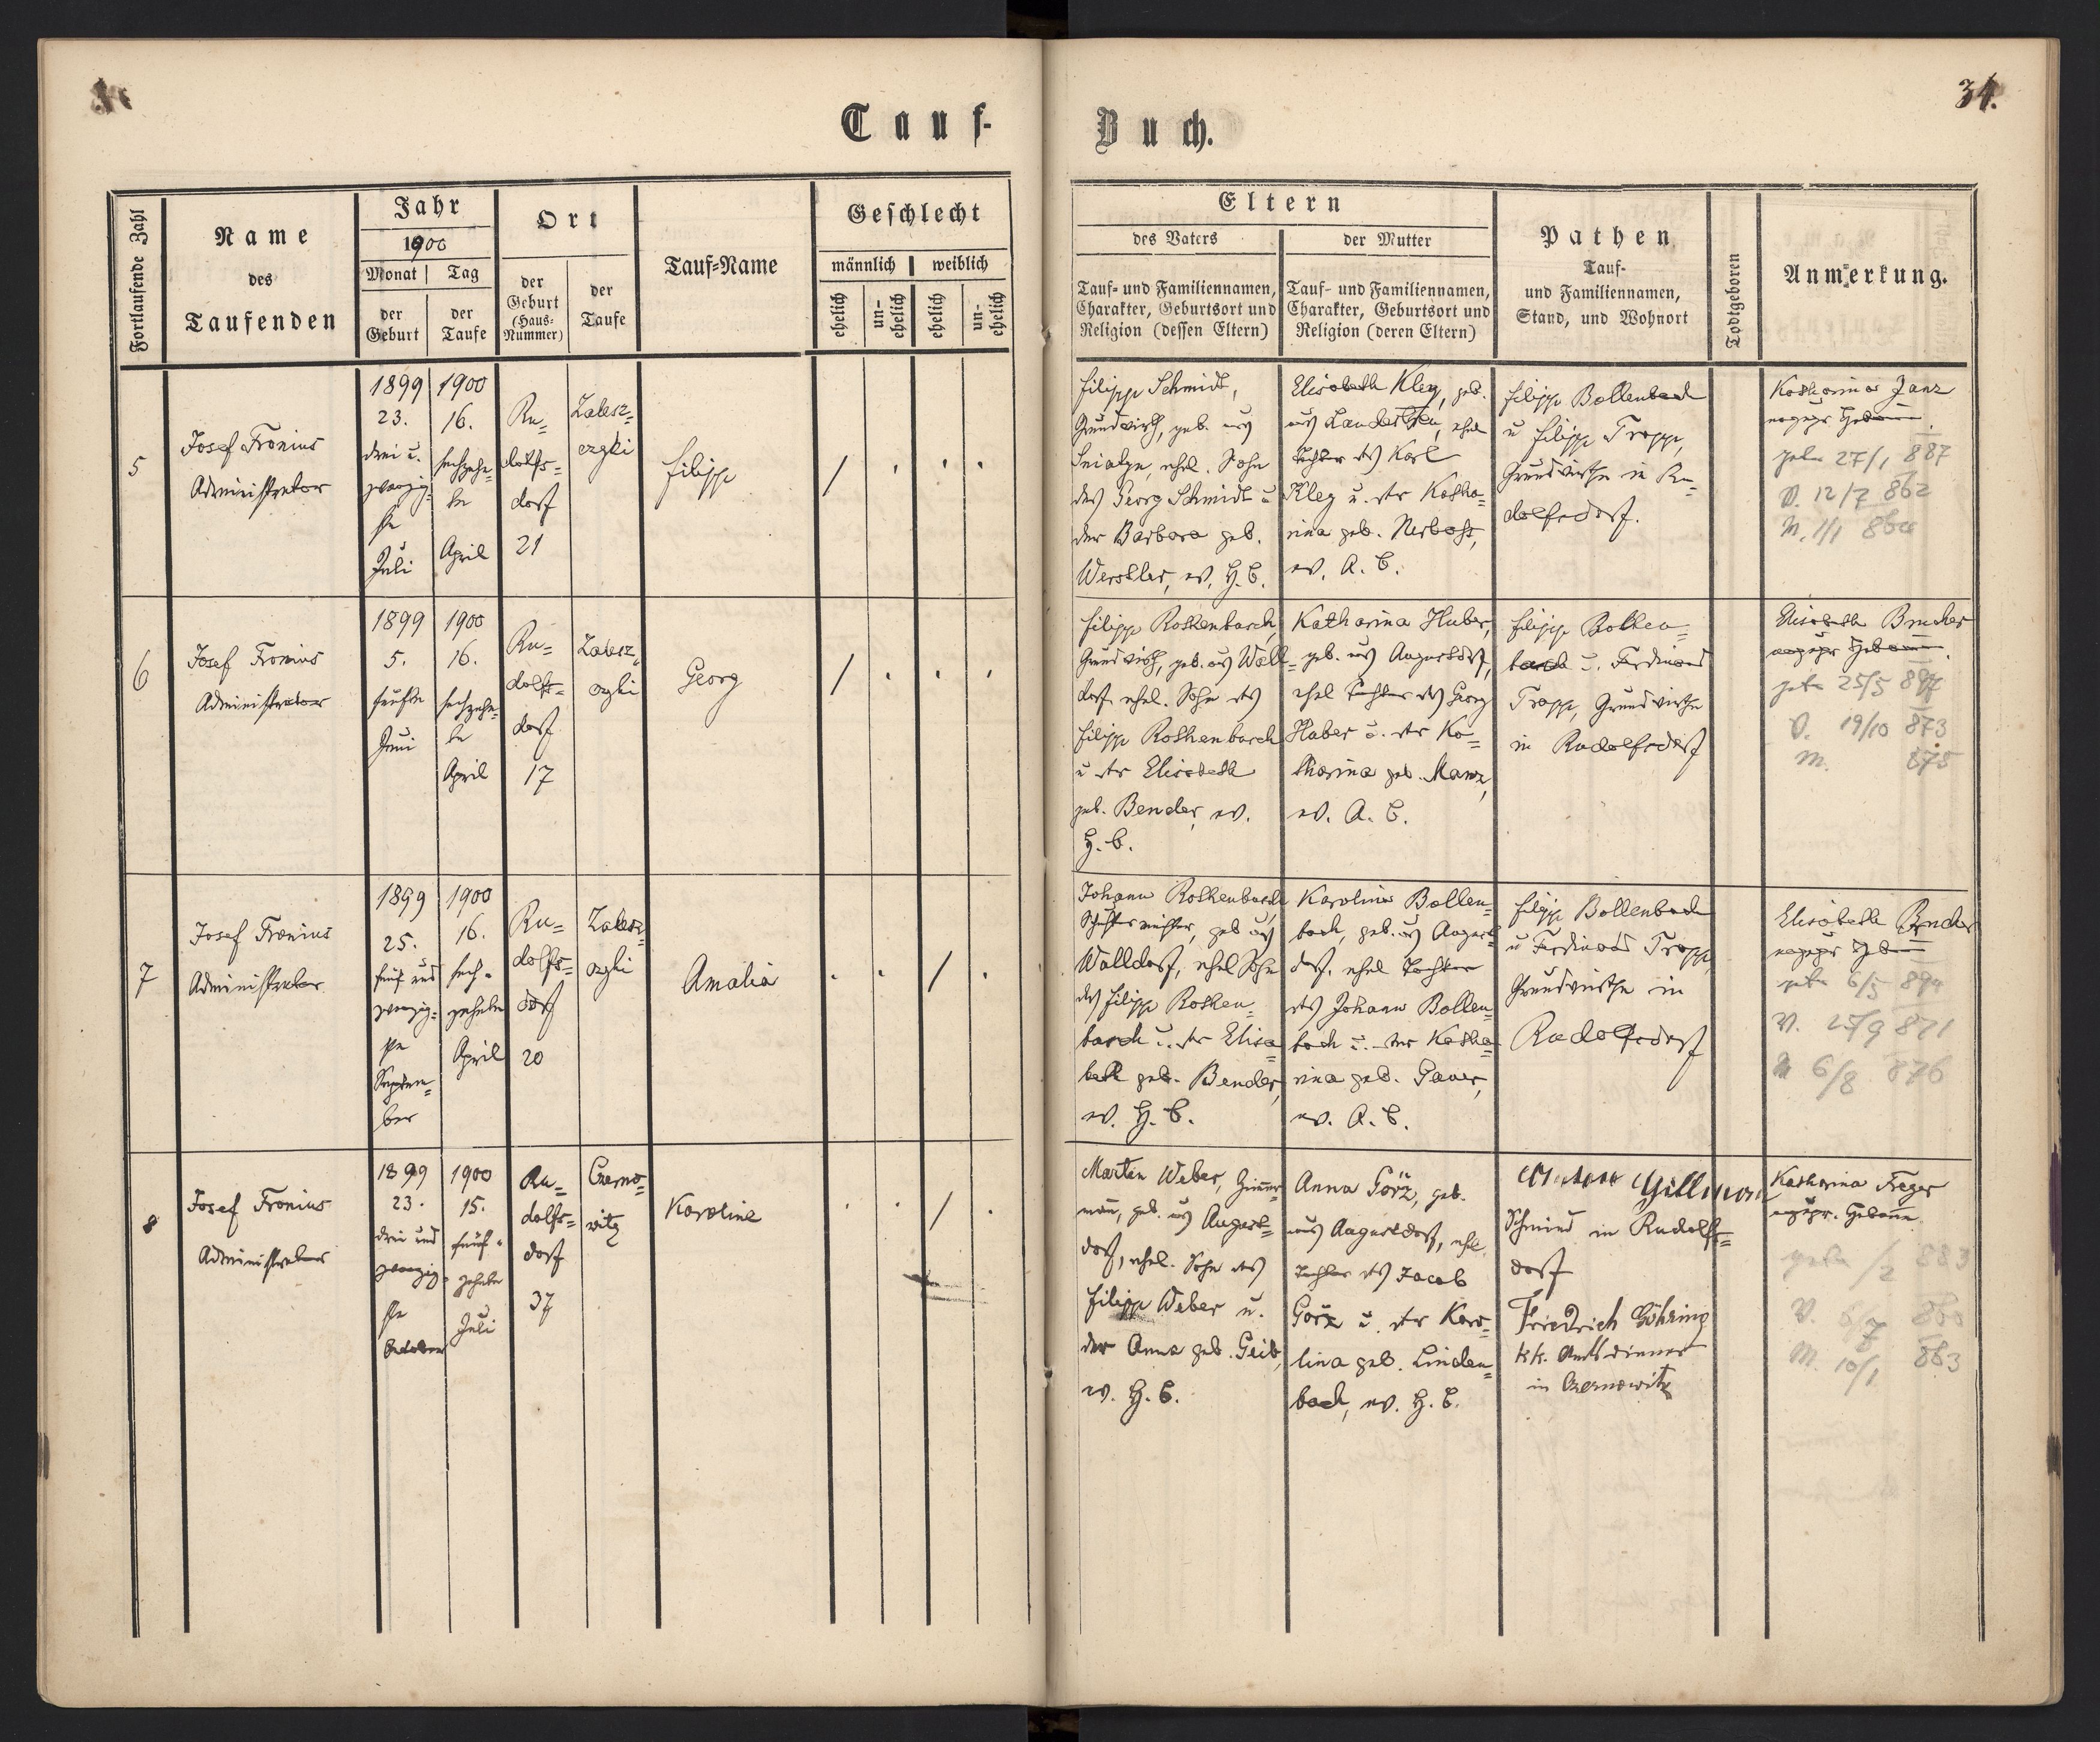 34.
Tauf-
Buch.
Fortlaufende Zahl
Name
des
Taufenden
Jahr
1900
Monat | Tag
der Geburt
der Taufe
Ort
der Geburt (Haus-Nummer)
der Taufe
Tauf-Name
Geschlecht
männlich
weiblich
ehelich
un-ehelich
ehelich
un-ehelich
Eltern
des Vaters
der Mutter
Tauf- und Familiennamen,
Charakter, Geburtsort und
Religion (dessen Eltern)
Tauf- und Familiennamen,
Charakter, Geburtsort und
Religion (deren Eltern)
Pathen
Tauf-
und Familiennamen,
Stand, und Wohnort
Todtgeboren
Anmerkung.
5
Josef Fronius
Administrator
1899
23.
drei u.
zwanzig-
ste
Juli
1900
16.
sechzehn-
te
April
Ru=
dolfs=
dorf
21
Zalesz=
czyki
Filipp
/
Filipp Schmidt,
Grundwirth, geb. aus
ehel. Sohn
des Georg Schmidt u
der Barbara geb.
ev. H.B.
Elisabeth Kley, geb.
aus ehel
Tochter des Karl
Kley u. der Katha=
rina geb.
ev. A. B.
Filipp Bollenbach
u Filipp Tropp,
Grundwirthe in Ru=
dolfsdorf.
Katharina Janz
ungepr Hebamme.
geta 27/1 887
V. 12/7 862
M. 1/1
6
Josef Fronius
Administrator
1899
5.
fünfte
Juni
1900
16.
sechzehn=
te
April
Ru=
dolfs=
dorf
17
Zalesz=
czyki
Georg
/
Filipp Rothenbasch,
Grundwirth, geb. aus Wall=
dorf ehel. Sohn des
Filipp Rothenbasch
u der Elisabeth
geb. Bender, ev.
H. B.
Katharina Huber,
geb. aus Augustdorf,
ehel Tochter des Georg
Huber u. der Ka=
tharina geb. Manz,
ev. A. B.
Filipp Bollen=
bach u. Ferdinand
Tropp, Grundwirthe
in Rudolfsdorf
Elisabeth Bruder
ungepr Hebamme.
geta 25/5
V. 19/10 873
M. 875
7
Josef Fronius
Administrator
1899
25.
fünf und
zwanzig=
ste
Septem=
ber
1900
16.
sech=
zehnte
April
Ru=
dolfs=
dorf
20
Zalesz=
czyki
Amalia
/
Johann Rothenbasch,
Schustermeister, geb aus
Walldorf, ehel Sohn
des Filipp Rothen=
basch u. der Elisa=
beth geb. Bender,
ev. H. B.
Karolina Bollen=
bach, geb. aus August=
dorf, ehel Tochter
des Johann Bollen=
bach u. der Katha=
rina geb. Gauer,
ev. A. B.
Filipp Bollenbach
u Ferdinand Tropp,
Grundwirthe in
Rudolfsdorf
Elisabeth Bruder
ungepr Hebamme
geta 6/5
V. 25/9 871
M 6/8 876
8
Josef Fronius
Administrator
1899
23.
drei und
zwanzig=
ste
October
1900
15.
fünf=
zehnte
Juli
Ru=
dolfs=
dorf
37
Czerno=
witz
Karoline
/
Martin Weber, Zimmer=
mann, geb. aus August=
dorf, ehel. Sohn des
Filipp Weber u.
der Anna geb. Geib,
ev. H. B.
Anna Görz, geb.
aus Augustdorf, ehel.
Tochter des Jacob
Görz u. der Karo=
lina geb. Linden=
bach, ev. H. B.
Schmied in Rudolfs=
dorf
Friedrich Göhring
kk. Amtsdiener
in Czernowitz
Katharina Freger
ungepr. Hebamme
geta /2 883
V. 860
M. 10/1 883